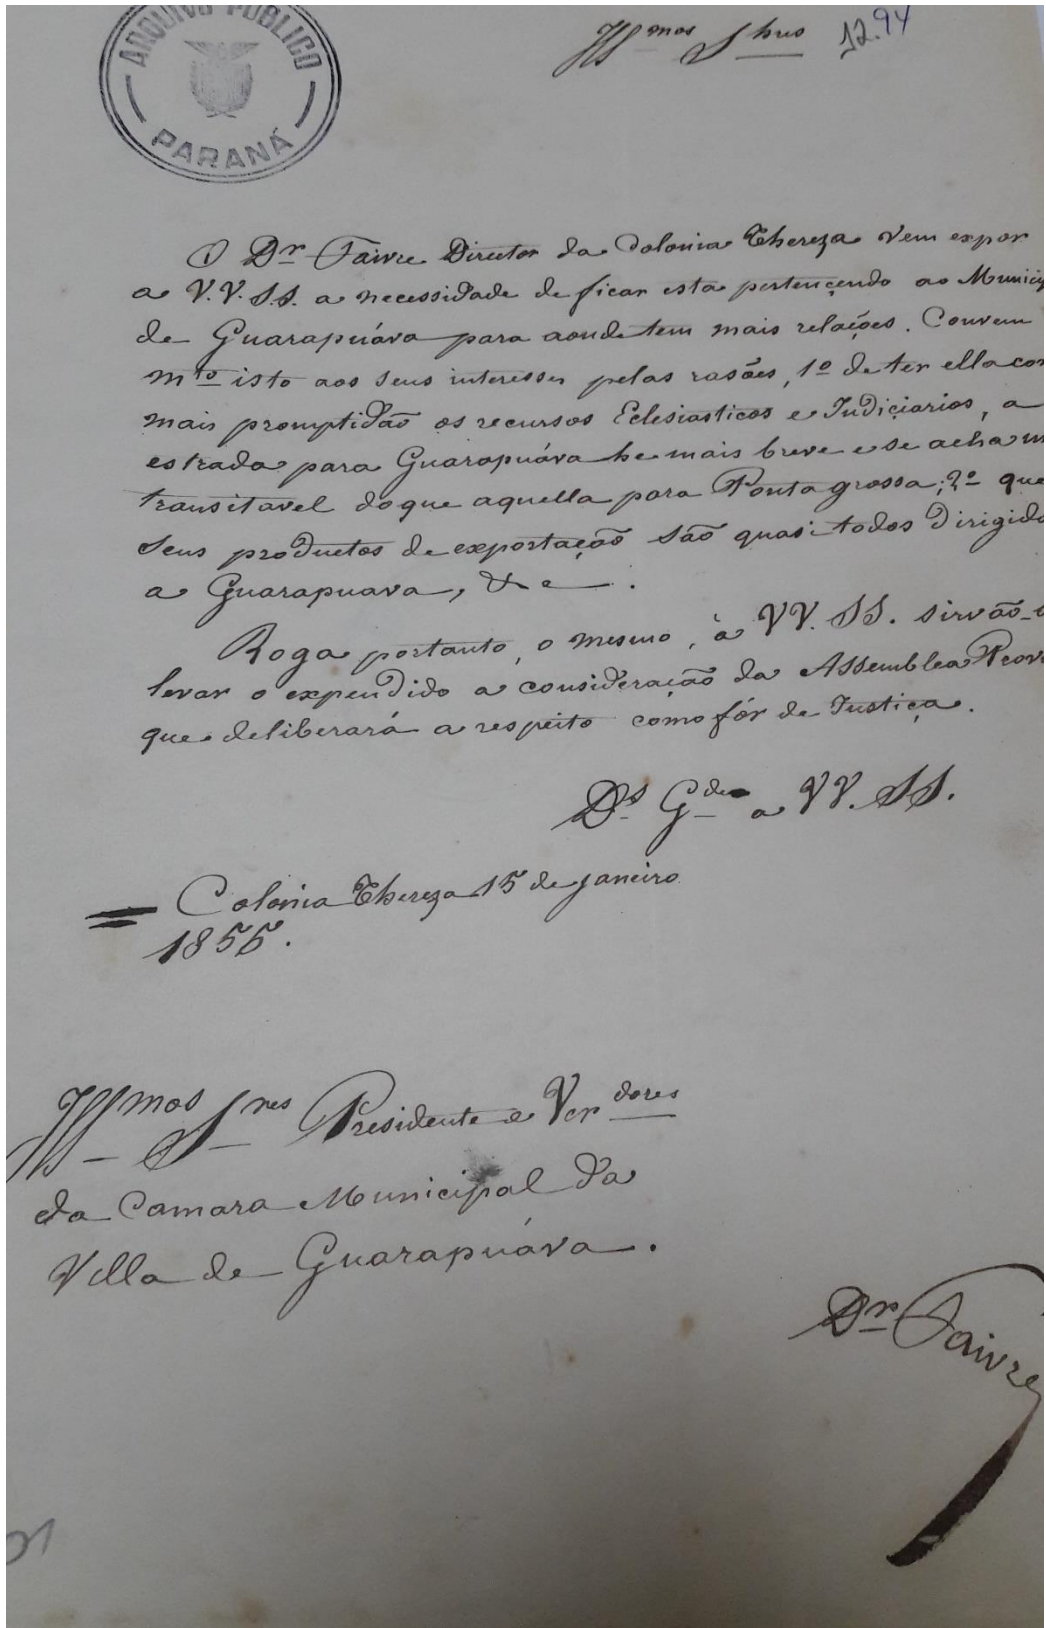 ARQUIVO PÚBLICO
PARANÁ
Illmos Snres 12.94
O Dr Faivre Director da Colonia Thereza vem expor
a V.V.S.S. a necessidade de ficar esta pertençendo ao Municip
de Guarapuáva para aonde tem mais relações. Convem
mto isto aos seus interesses pelas rasões, 1º de ter ella com
mais promptidão os recursos Eclesiasticos e Judiçiarios, a
estrada para Guarapuáva he mais breve e se acha m
transitavel do que aquella para Ponta grossa; 2º que
seus productos de exportação são quasi todos dirigido
a Guarapuava, &c.
Roga portanto, o mesmo, à VV. SS. sirvão-
levar o expendido a consideração da Assemblea Provi
que deliberará a respeito como fôr de Justiça.
Ds Gde a VV. SS.
Colonia Thereza 15 de janeiro
1855.
Illmos Snres Presidente e Verdores
da Camara Municipal da
Villa de Guarapuáva.
Dr Faivre